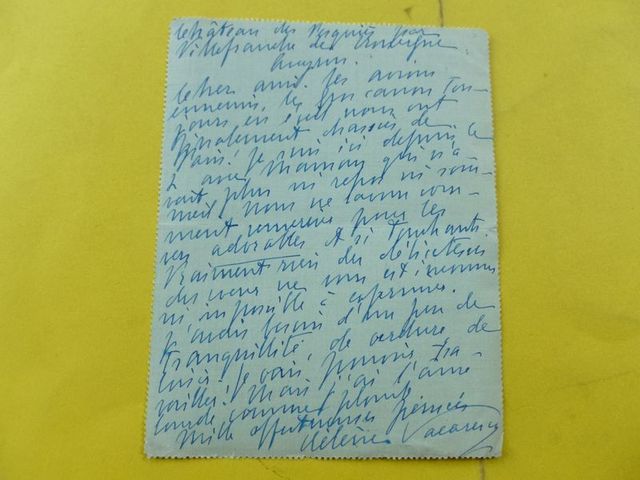 Château des Pesquiès par
Villefranche de Rouergue
Aveyron.
Cher ami. Les avions
ennemis, les gros canons tou-
jours en éveil nous ont
finalement chassés de
Paris. Je suis ici depuis le
2 avec Maman qui n'a-
vait plus ni repos ni som-
meil. Nous ne savons com-
ment remercier pour les
vers adorables et si touchants.
Vraiment rien des délicatesses
des cœurs ne vous est inconnu
ni impossible à exprimer.
J'avais besoin d'un peu de
tranquillité, de verdure de
loisir. Je vais, pouvoir tra-
vailler. Mais j'ai l'âme
lourde comme plomb
Mille affectueuses pensées
Hélène Vacaresco